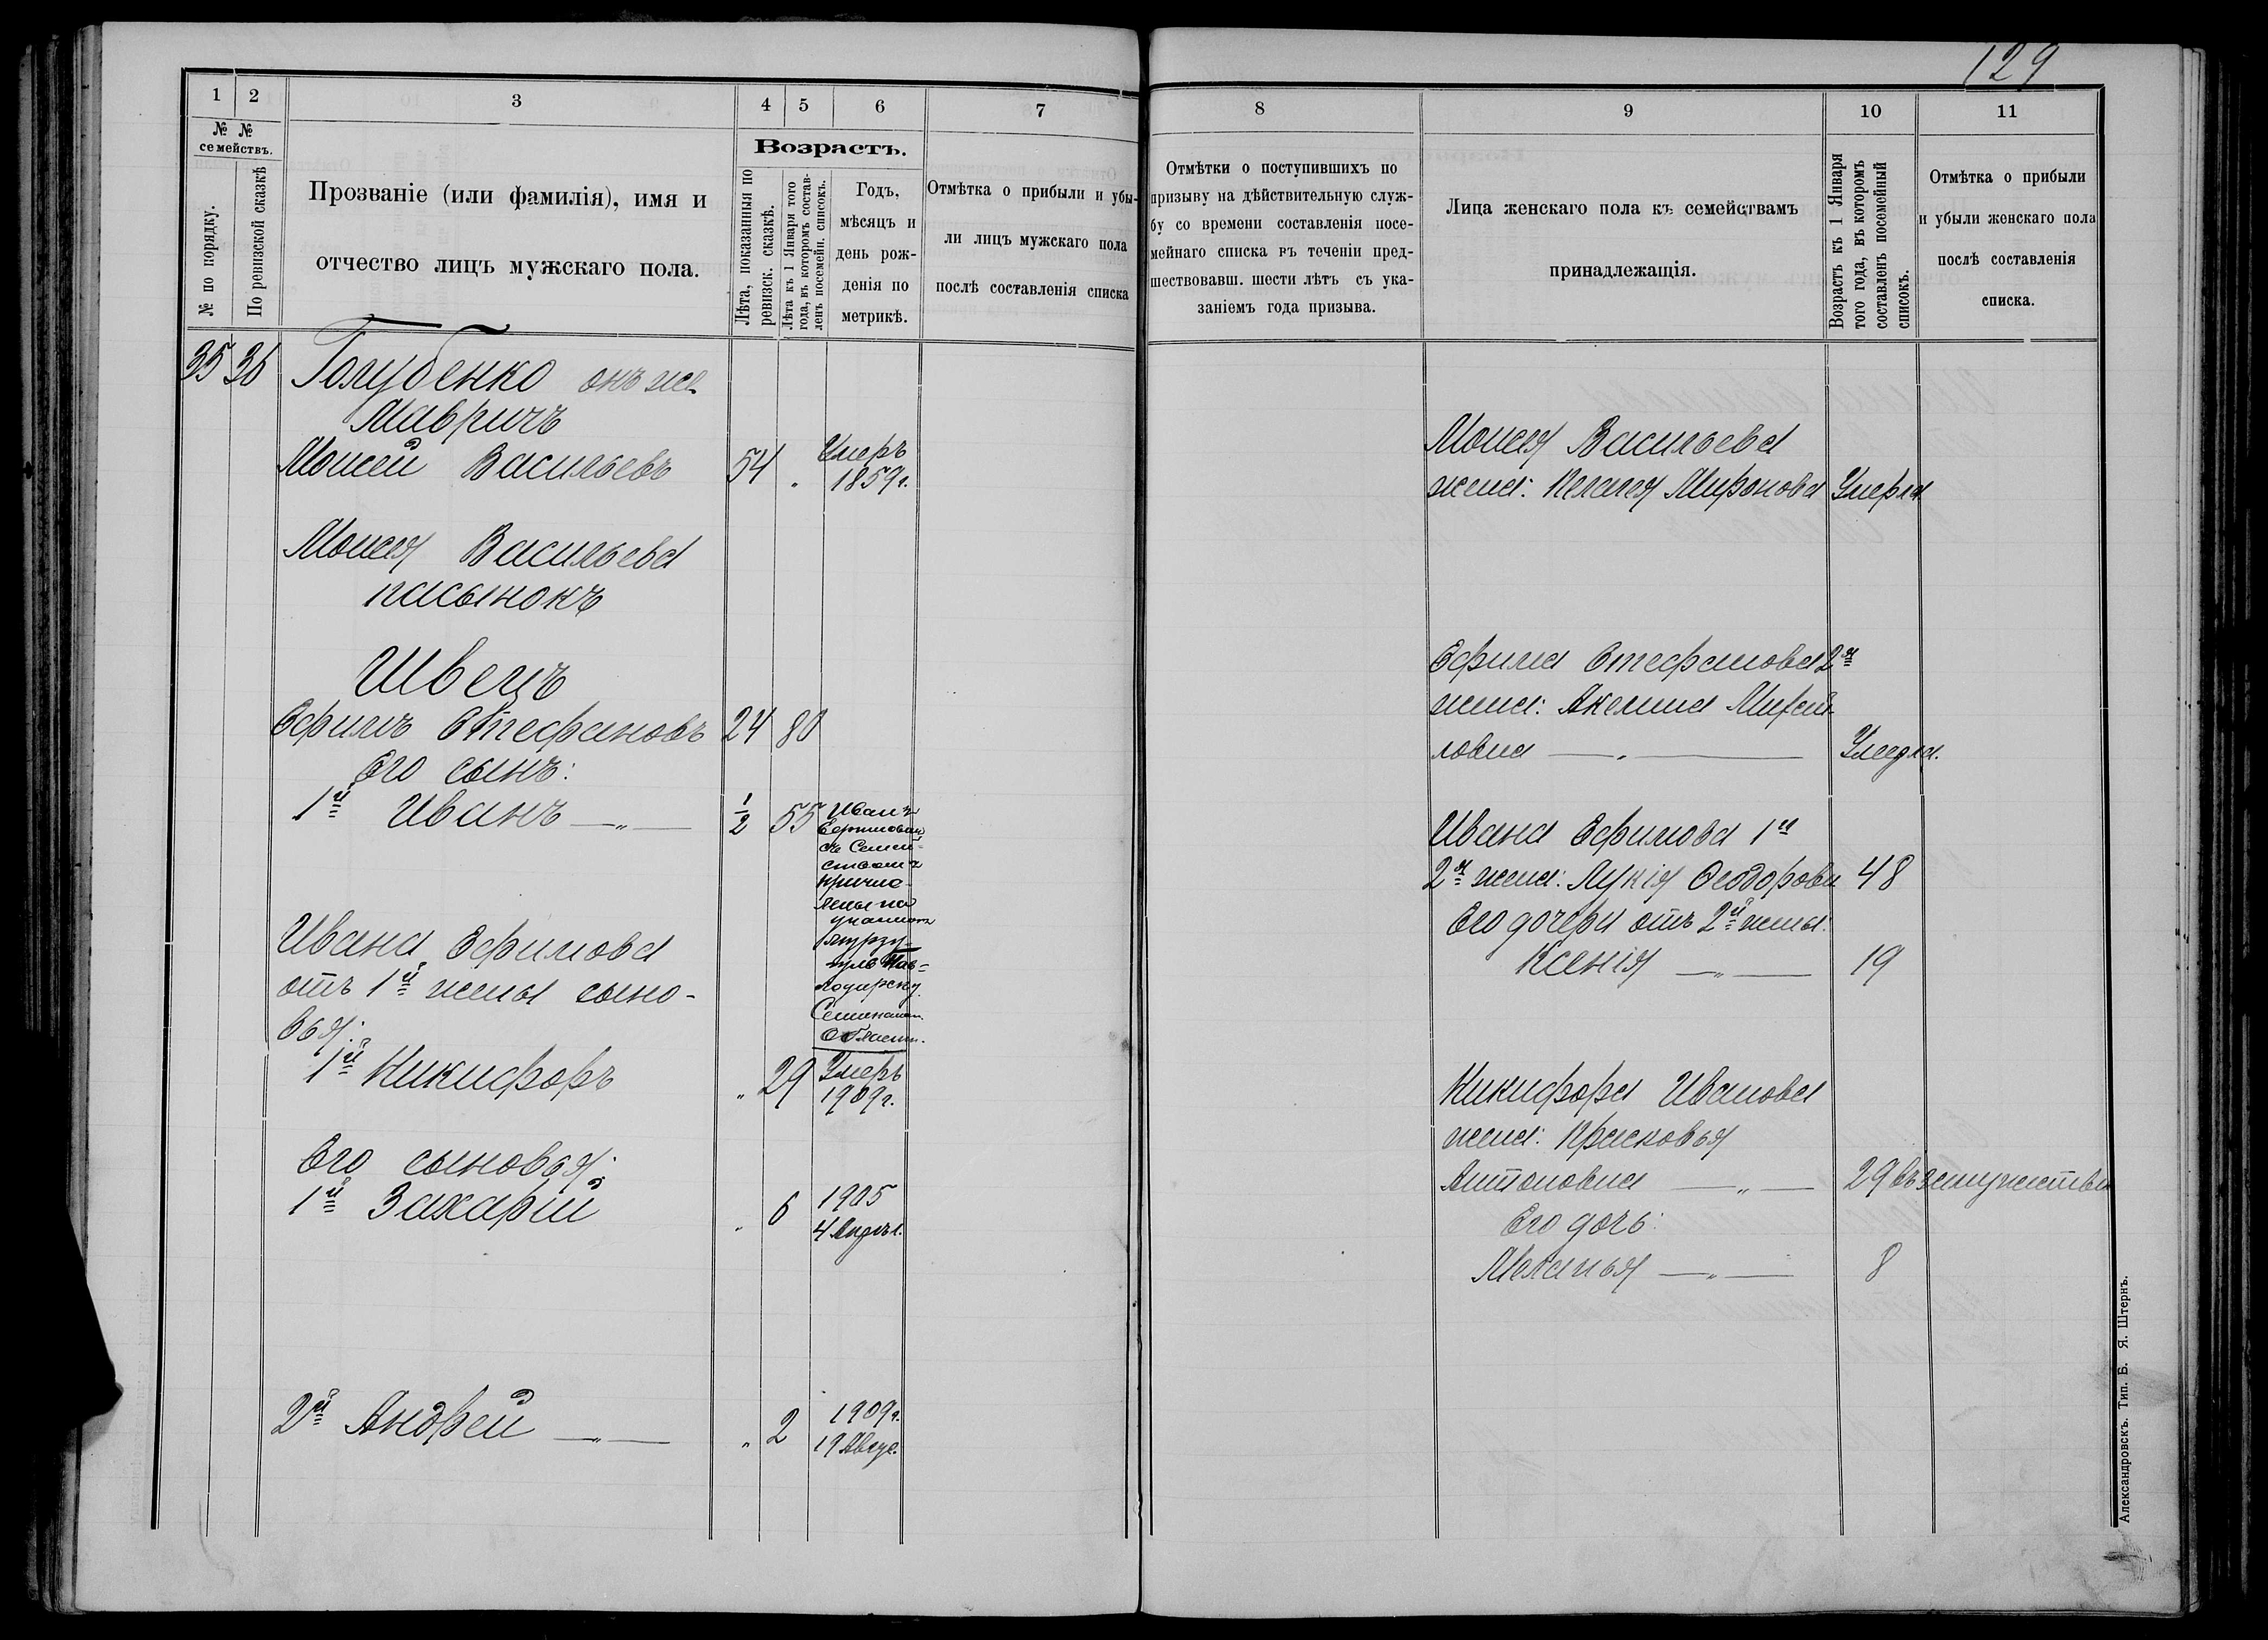 129
1 2 3 4 5 6 7
№ №
семействъ.
№ по порядку.
По ревизской сказкѣ
Прозваніе (или фамилія), имя и
отчество лицъ мужскаго пола.
Возрастъ.
Лѣта, показанныя по
ревизск. сказкѣ.
Лѣта къ 1 Января того
года, въ которомъ состав-
ленъ посемейн. списокъ.
Годъ,
мѣсяцъ и
день рож-
денія по
метрикѣ.
Отмѣтка о прибыли и убы-
ли лицъ мужскаго пола
послѣ составленія списка
35 36 Голубенко онъ же
Мавричъ
Моисей Васильевъ 54 „ Умеръ
1859 г.
Моисея Васильева
пасынокъ
Швецъ
Ефимъ Стефановъ 24 80
Его сынъ:
1й Иванъ — „ — 1/2 55 Иванъ
Ефимовъ
съ Семей-
ствомъ
причис-
лены на
Павлодарску
Семипалат.
Област.
Ивана Ефимова
отъ 1й жены сыно-
вья:
1й Никифоръ „ 29 Умеръ
1909 г.
Его сыновья:
1й Захарій „ 6 1905
4 Апрѣл.
2й Андрей — „ — „ 2 1909 г.
19 Авгус.
8 9 10 11
Отмѣтки о поступившихъ по
призыву на дѣйствительную служ-
бу со времени составленія посе-
мейнаго списка въ теченіи пред-
шествовавш. шести лѣтъ съ ука-
заніемъ года призыва.
Лица женскаго пола къ семействамъ
принадлежащія.
Возрастъ къ 1 Января
того года, въ которомъ
составленъ посемейный
списокъ.
Отмѣтка о прибыли
и убыли женскаго пола
послѣ составленія
списка.
Моисея Васильева
жена: Пелагея Миронова Умерла
Ефима Стефанова 2я
жена: Акелина Михай-
ловна — „ — Умерла.
Ивана Ефимова 1й
2я жена: Лукія Ѳеодоровн 48
Его дочери отъ 2й жены:
Ксенія — „ — 19
Никифора Иванова
жена: Прасковья
Антоновна — „ — 29 въ замужствѣ
Его дочь:
Меланья — „ — 8
Александровскъ. Тип. Б. Я. Штернъ.